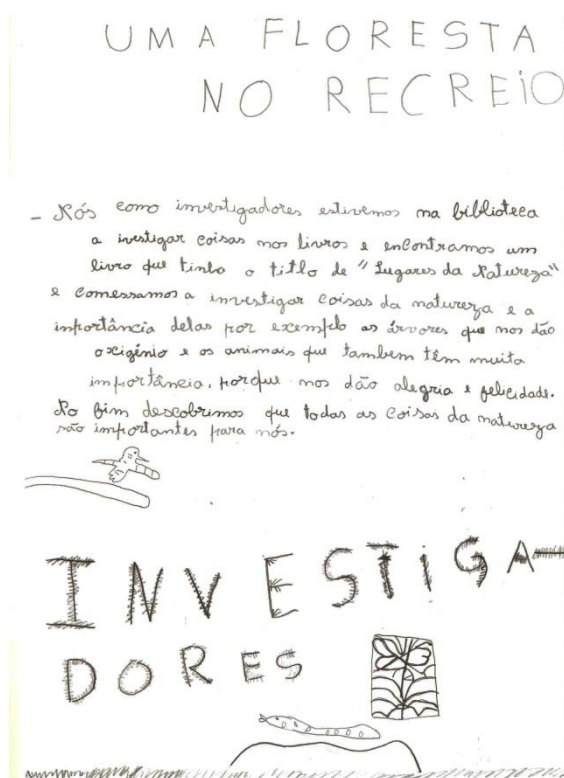 UMA FLORESTA
NO RECREIO
- Nós como investigadores estivemos na biblioteca
a ivestigar coisas nos livros e encontramos um
livro que tinha o titlo de "Lugares da Natureza"
e comessamos a investigar coisas da natureza e a
importância delas por exemplo as árvores que nos dão
oxigénio e os animais que tambem têm muita
importância, porque nos dão alegria e felicidade.
No fim descobrimos que todas as coisas da natureza
são importantes para nós.
INVESTIGA-
DORES